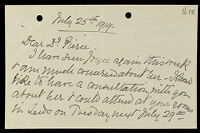 July 25th 1919.
Dear Dr Pierce
I have seen Joyce again this week
& am much concerned about her - I should
like to have a consultation with you
about her & could attend at your rooms
in Leeds on Tuesday next July 29th